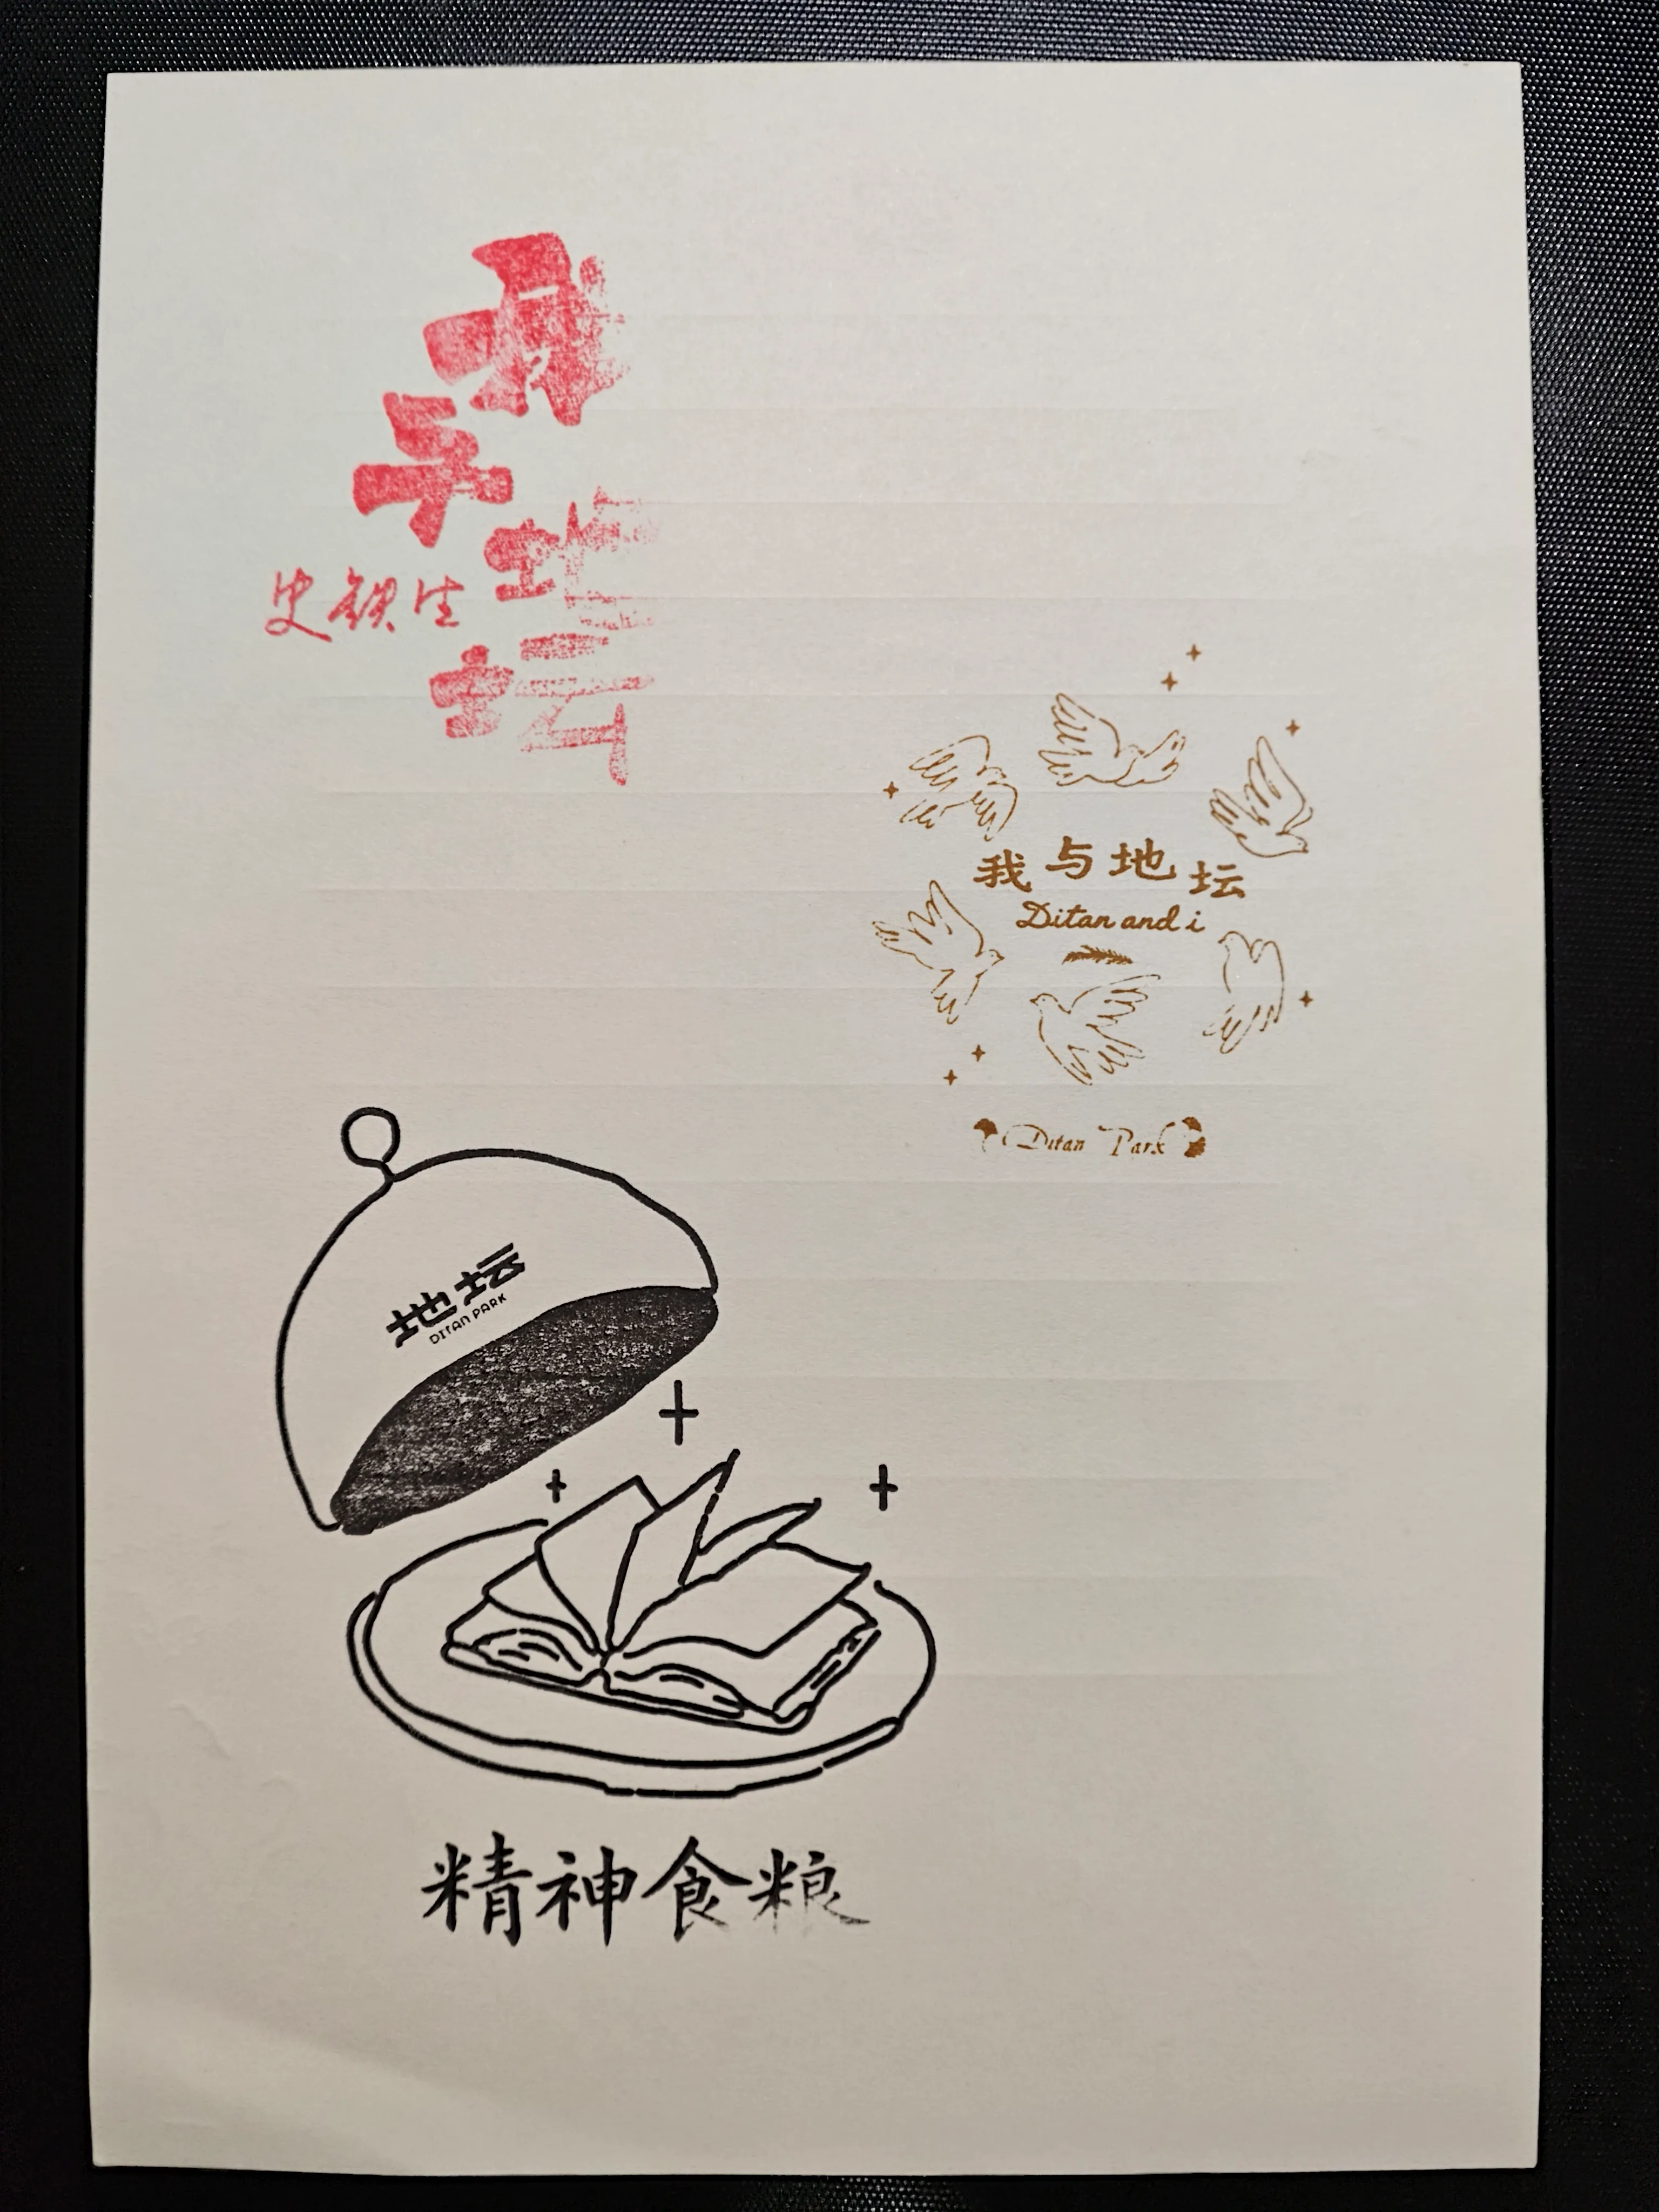 我
与
地
史铁生
坛
我与地坛
Ditan and i
Ditan Park
地坛
DITAN PARK
精神食粮